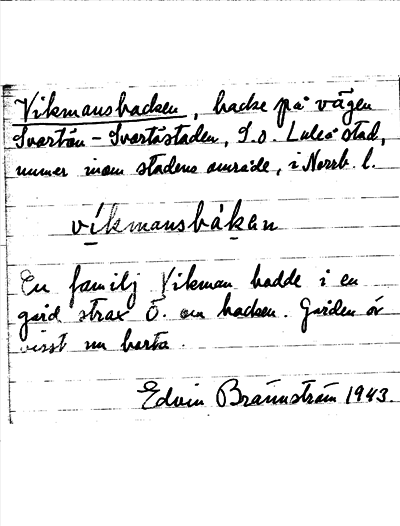 Vikmansbacken, backe på vägen
Svartön - Svartöstaden, S.o. Luleå stad,
numer inom stadens område, i Norrb. l.
víkmansbàkan
En familj Vikman hadde i en
gård strax Ö. om backen. Gården är
visst nu borta.
Edvin Brännström 1943.